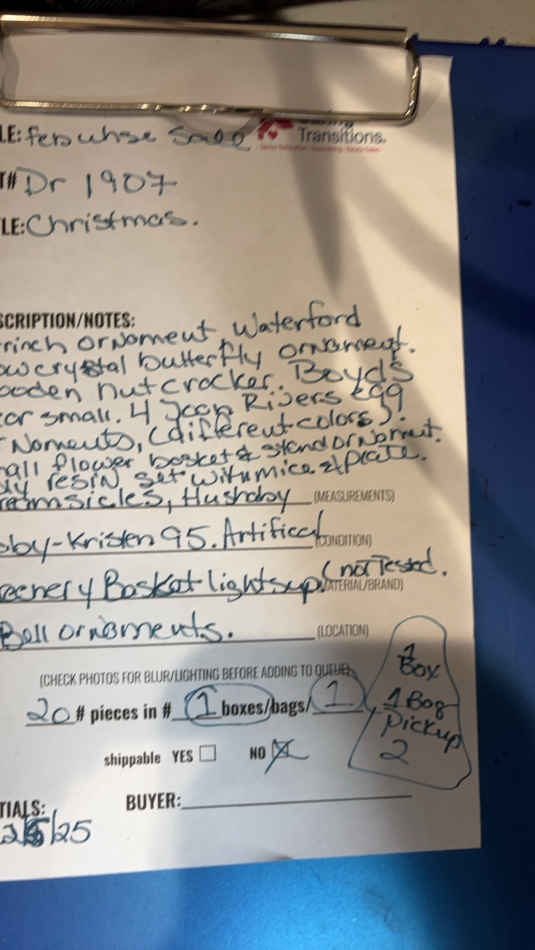 LE: feb whse Sale
Transitions.
T# Dr 1907
LE: Christmas.
SCRIPTION/NOTES:
rinch ornoment Waterford
crystal butterfly ornament.
ooden nutcracker. Boyds
ear small. 4 Joan Rivers egg
Noments, (different colors).
all flower basket & stand ornoment.
resin set with mice & plate.
reamsicles, Hushaby (MEASUREMENTS)
oby-Kristen 95. Artifical (CONDITION)
eenery Basket lightsup. (not Tested. ATERIAL/BRAND)
Bell ornoments. (LOCATION)
(CHECK PHOTOS FOR BLUR/LIGHTING BEFORE ADDING TO QUEUE)
20 # pieces in # 1 boxes/bags/ 1
1 Box
1 Bag
Pickup
2
shippable YES NO X
TIALS: BUYER:
/25